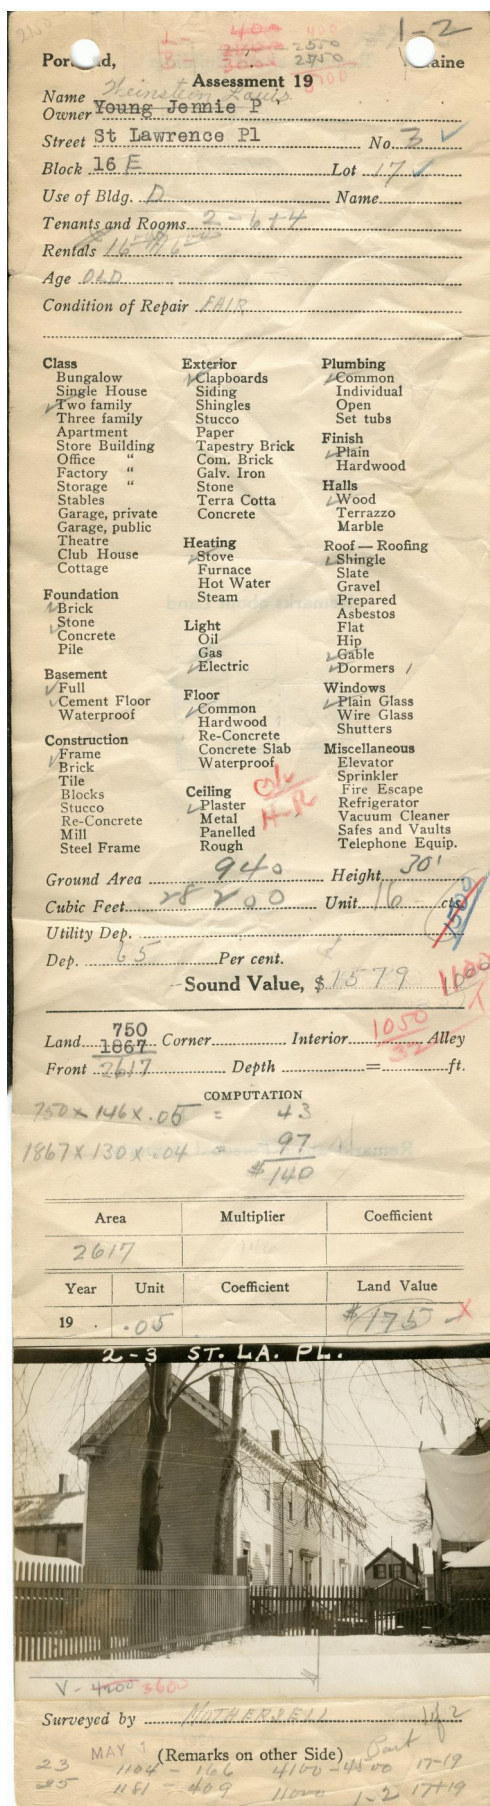 2150
400 400
2150 2550
2750
3700
1-2
Portland, Maine
Assessment 19
Name Weinstein Louis
Owner Young Jennie P
Street St Lawrence Pl No. 3
Block 16 E Lot 17
Use of Bldg. D Name
Tenants and Rooms 2-6+4
Rentals 16
Age OLD
Condition of Repair FAIR
Class
Bungalow
Single House
Two family
Three family
Apartment
Store Building
Office "
Factory "
Storage "
Stables
Garage, private
Garage, public
Theatre
Club House
Cottage
Foundation
Brick
Stone
Concrete
Pile
Basement
Full
Cement Floor
Waterproof
Construction
Frame
Brick
Tile
Blocks
Stucco
Re-Concrete
Mill
Steel Frame
Exterior
Clapboards
Siding
Shingles
Stucco
Paper
Tapestry Brick
Com. Brick
Galv. Iron
Stone
Terra Cotta
Concrete
Heating
Stove
Furnace
Hot Water
Steam
Light
Oil
Gas
Electric
Floor
Common
Hardwood
Re-Concrete
Concrete Slab
Waterproof
Ceiling
Plaster
Metal
Panelled
Rough
Plumbing
Common
Individual
Open
Set tubs
Finish
Plain
Hardwood
Halls
Wood
Terrazzo
Marble
Roof — Roofing
Shingle
Slate
Gravel
Prepared
Asbestos
Flat
Hip
Gable
Dormers 1
Windows
Plain Glass
Wire Glass
Shutters
Miscellaneous
Elevator
Sprinkler
Fire Escape
Refrigerator
Vacuum Cleaner
Safes and Vaults
Telephone Equip.
O.K.
H-R
Ground Area 940 Height 30'
Cubic Feet 28200 Unit 16 cts.
Utility Dep.
Dep. 65 Per cent.
Sound Value, $1579
1100
1050
750
Land 1867 Corner Interior Alley
Front 2617 Depth = ft.
COMPUTATION
750 x 146 x .05 = 43
1867 x 130 x .04 = 97
$140
Area Multiplier Coefficient
2617
Year Unit Coefficient Land Value
19 . .05 $175 X
2-3 ST. LA. PL.
V- 4200 3600
Surveyed by MOTHERSELL 1 of 2
MAY 1 (Remarks on other Side) Part
23 1104 - 166 4100-4500 17-19
25 1181 - 409 11000 1-2 17+19